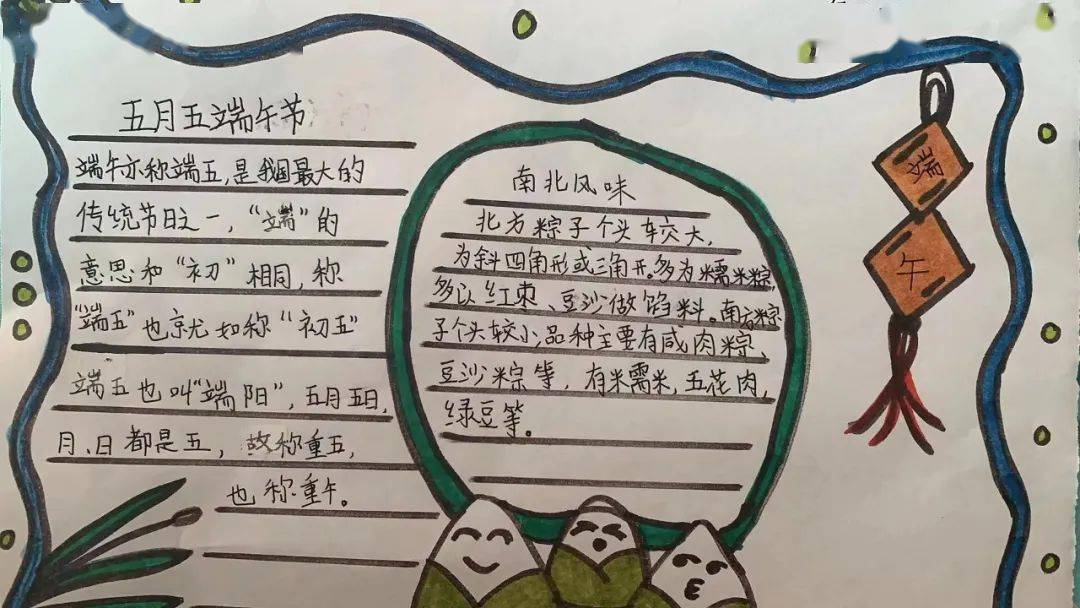 五月五端午节
端午亦称端五,是我国最大的
传统节日之一，“端”的
意思和“初”相同，称
“端五”也就如称“初五”
端五也叫“端阳”，五月五日，
月、日都是五，故称重五，
也称重午。
南北风味
北方粽子个头较大，
为斜四角形或三角形。多为糯米粽，
多以红枣、豆沙做馅料。南方粽
子个头较小，品种主要有咸肉粽、
豆沙粽等，有糯米，五花肉，
绿豆等。
端
午